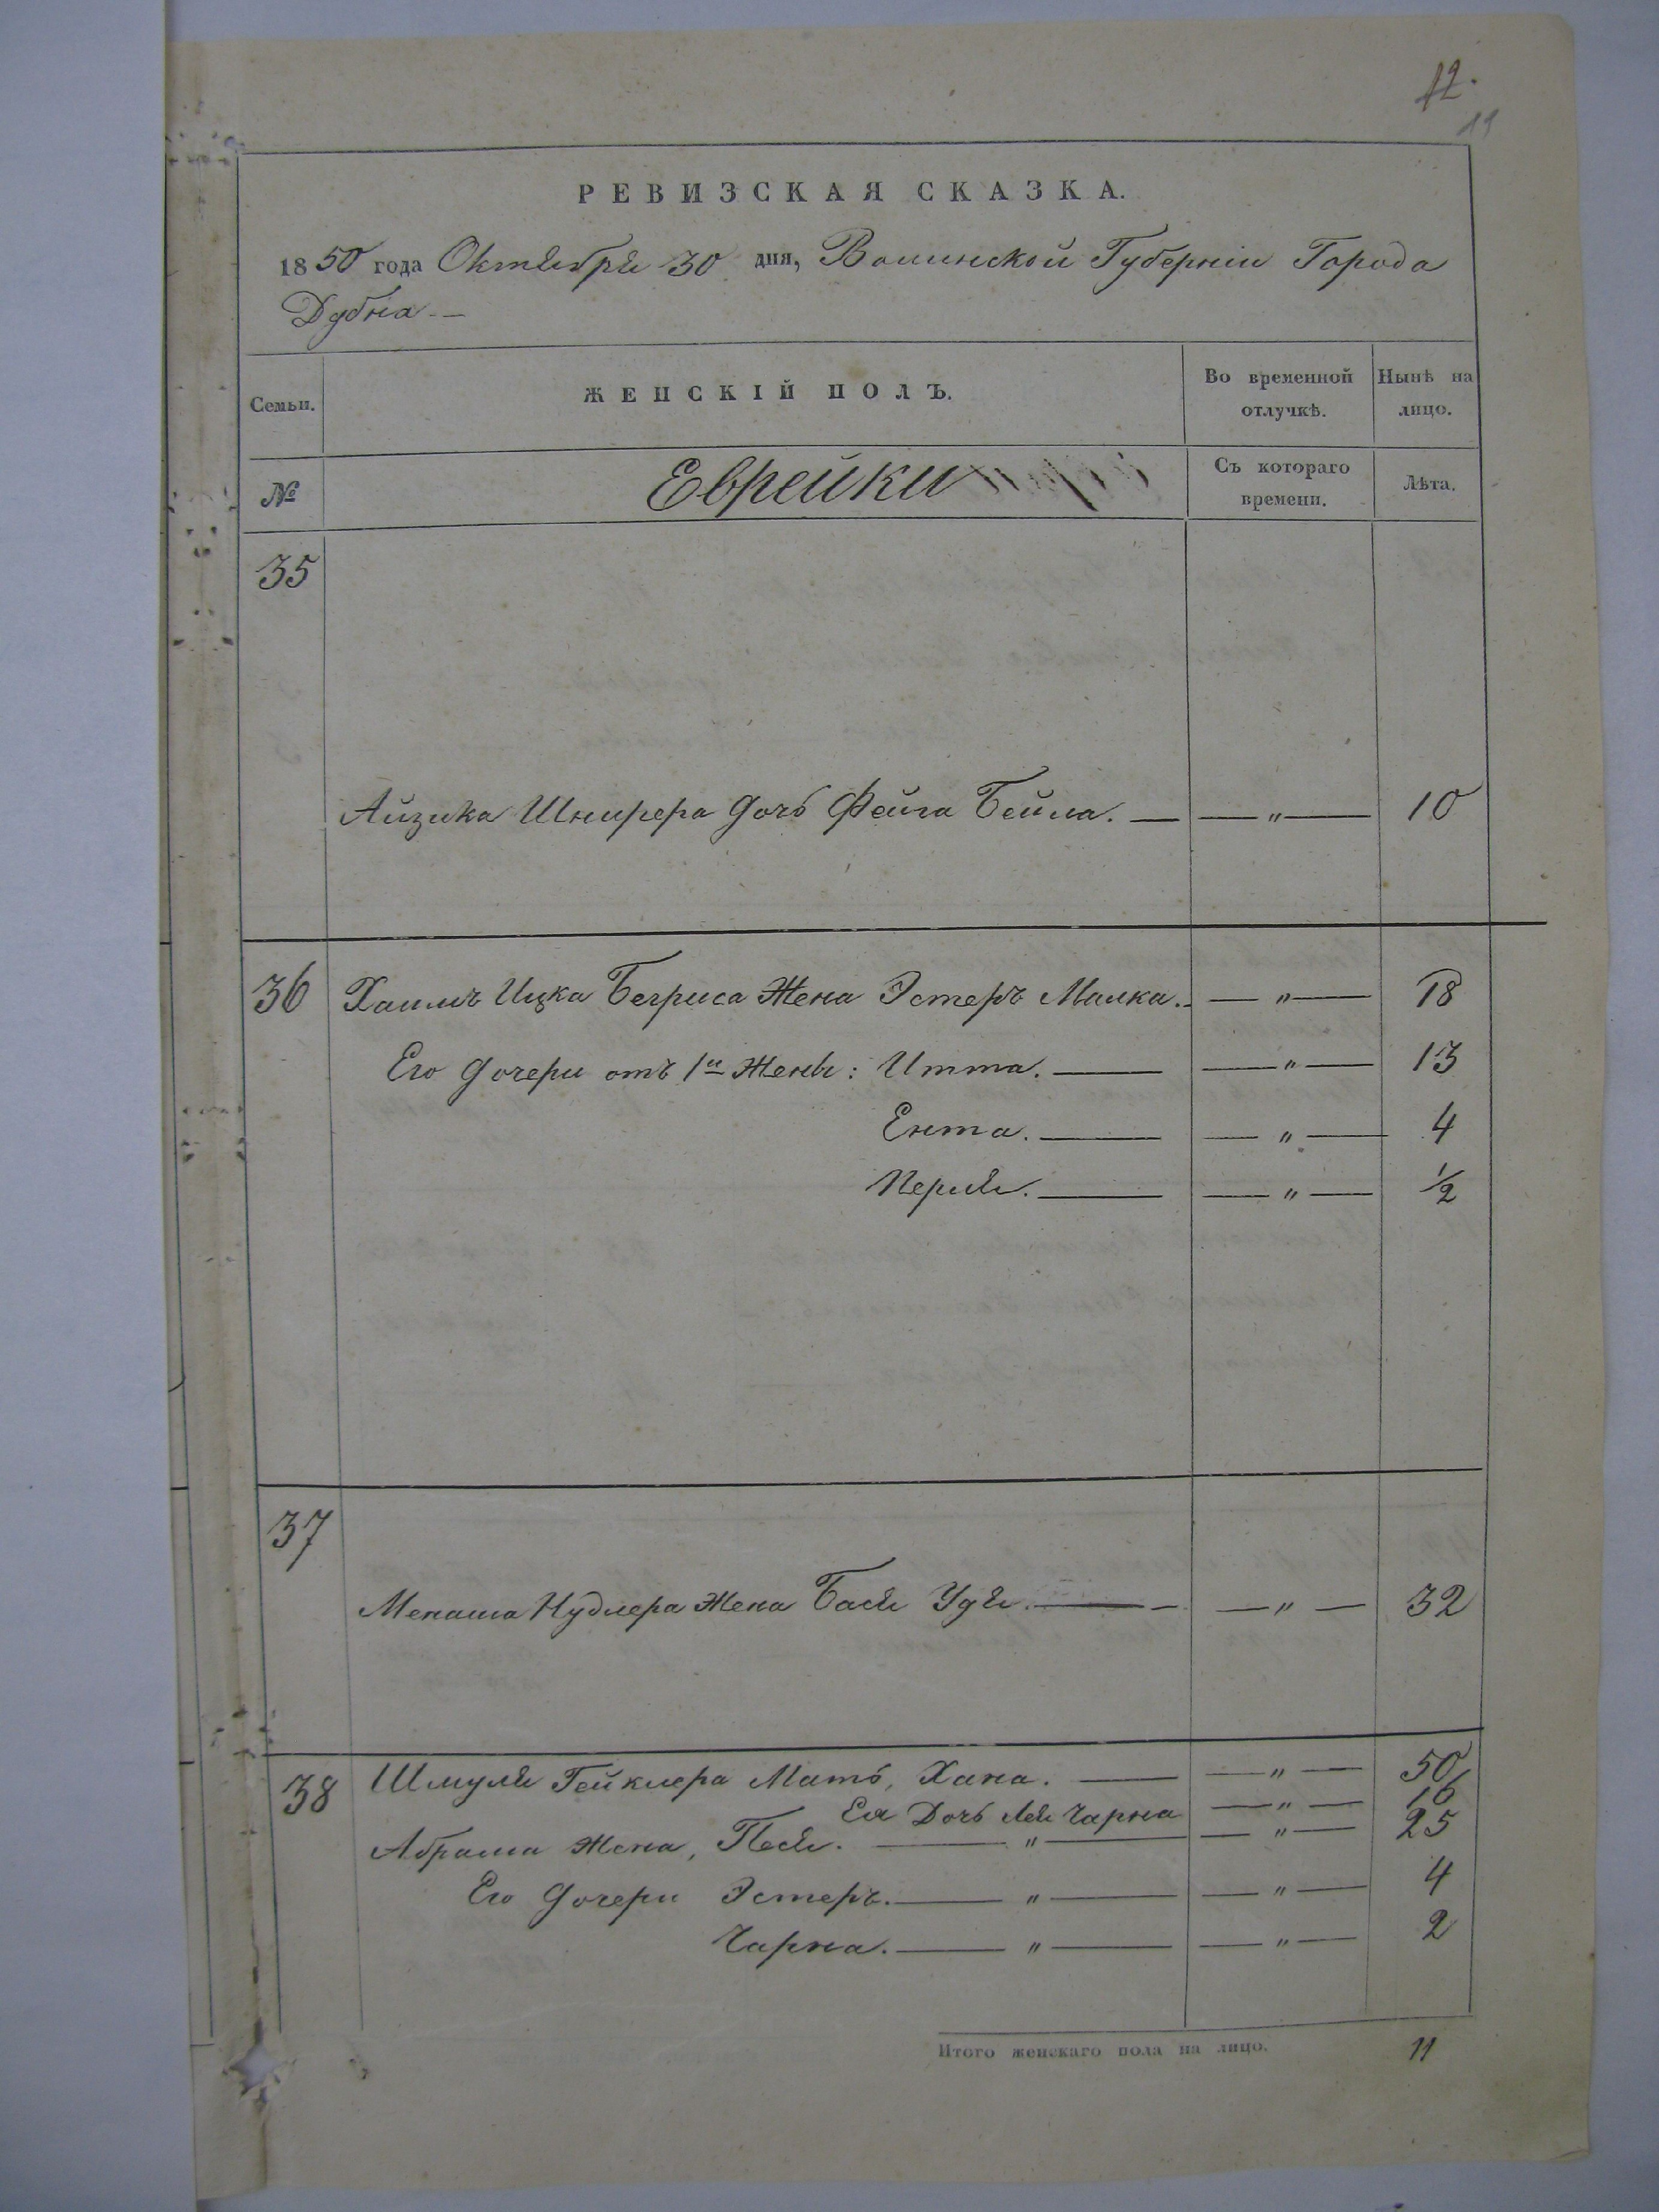 12.
11
РЕВИЗСКАЯ СКАЗКА.
1850 года Октября 30 дня, Волинской Губерніи Города
Дубна
Семьи. ЖЕНСКІЙ ПОЛЪ. Во временной отлучкѣ. Нынѣ на лицо.
№ Еврейки Съ котораго времени. Лѣта.
35
Айзика Шнирера дочь Фейга Бейла. — — " — 10
36 Хаимъ Ицка Бегриса Жена Эстеръ Малка. — " — 18
Его дочери отъ 1й Жены: Итта. — — " — 13
Ента. — — " — 4
Перля. — — " — ½
37
Менаша Нудлера Жена Бася Удя. — — " — 32
38 Шмуля Гейклера Мать, Хана. — — " — 50
Ея Дочь Лея Чарна — " — 16
Абрама Жена, Песя. — " — — " — 25
Его дочери Эстеръ. — " — — " — 4
Чарна. — " — — " — 2
Итого женскаго пола на лицо. 11